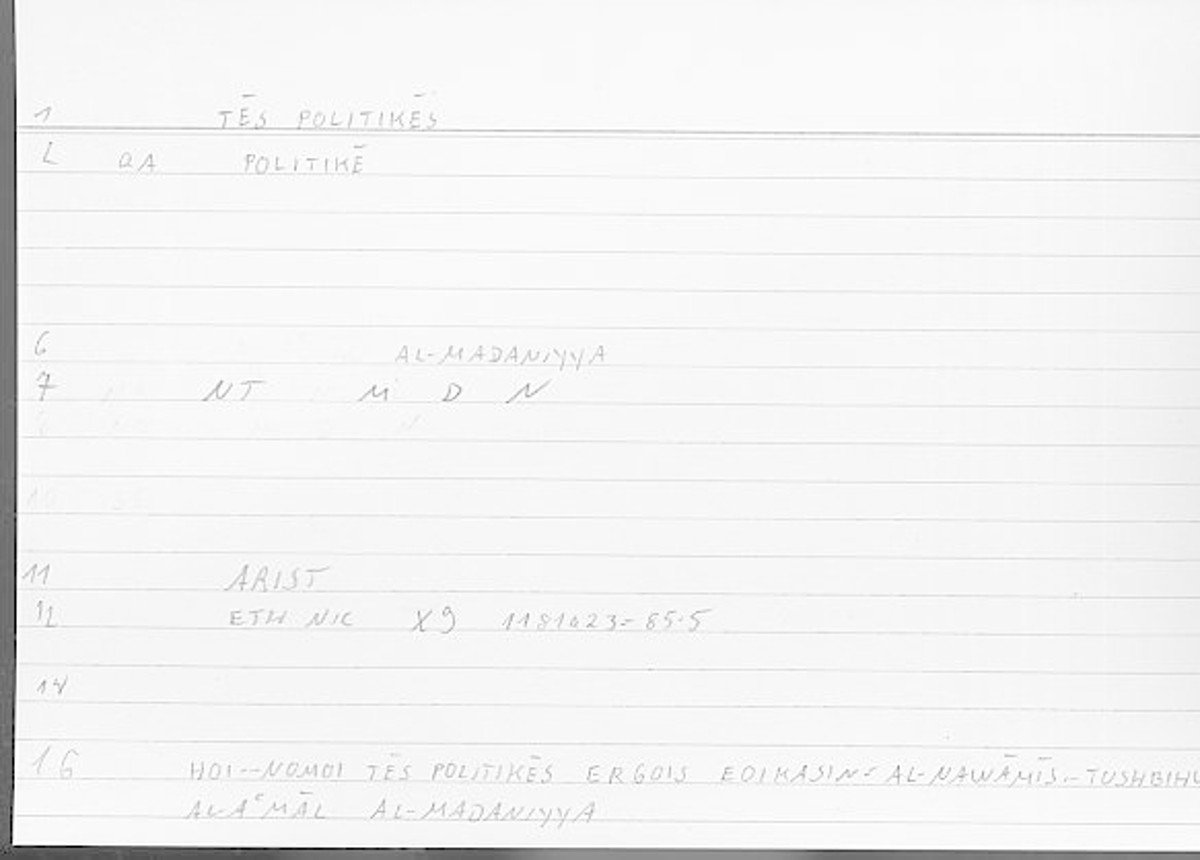 1 TĒS POLITIKĒS
2 QA POLITIKĒ
6 AL-MADANIYYA
7 NT M D N
11 ARIST
12 ETH NIC X9 1181a23=85.5
14
16 HOI--NOMOI TĒS POLITIKĒS ERGOIS EOIKASIN= AL-NAWĀMĪS.-TUSHBIHU
AL-AʿMĀL AL-MADANIYYA